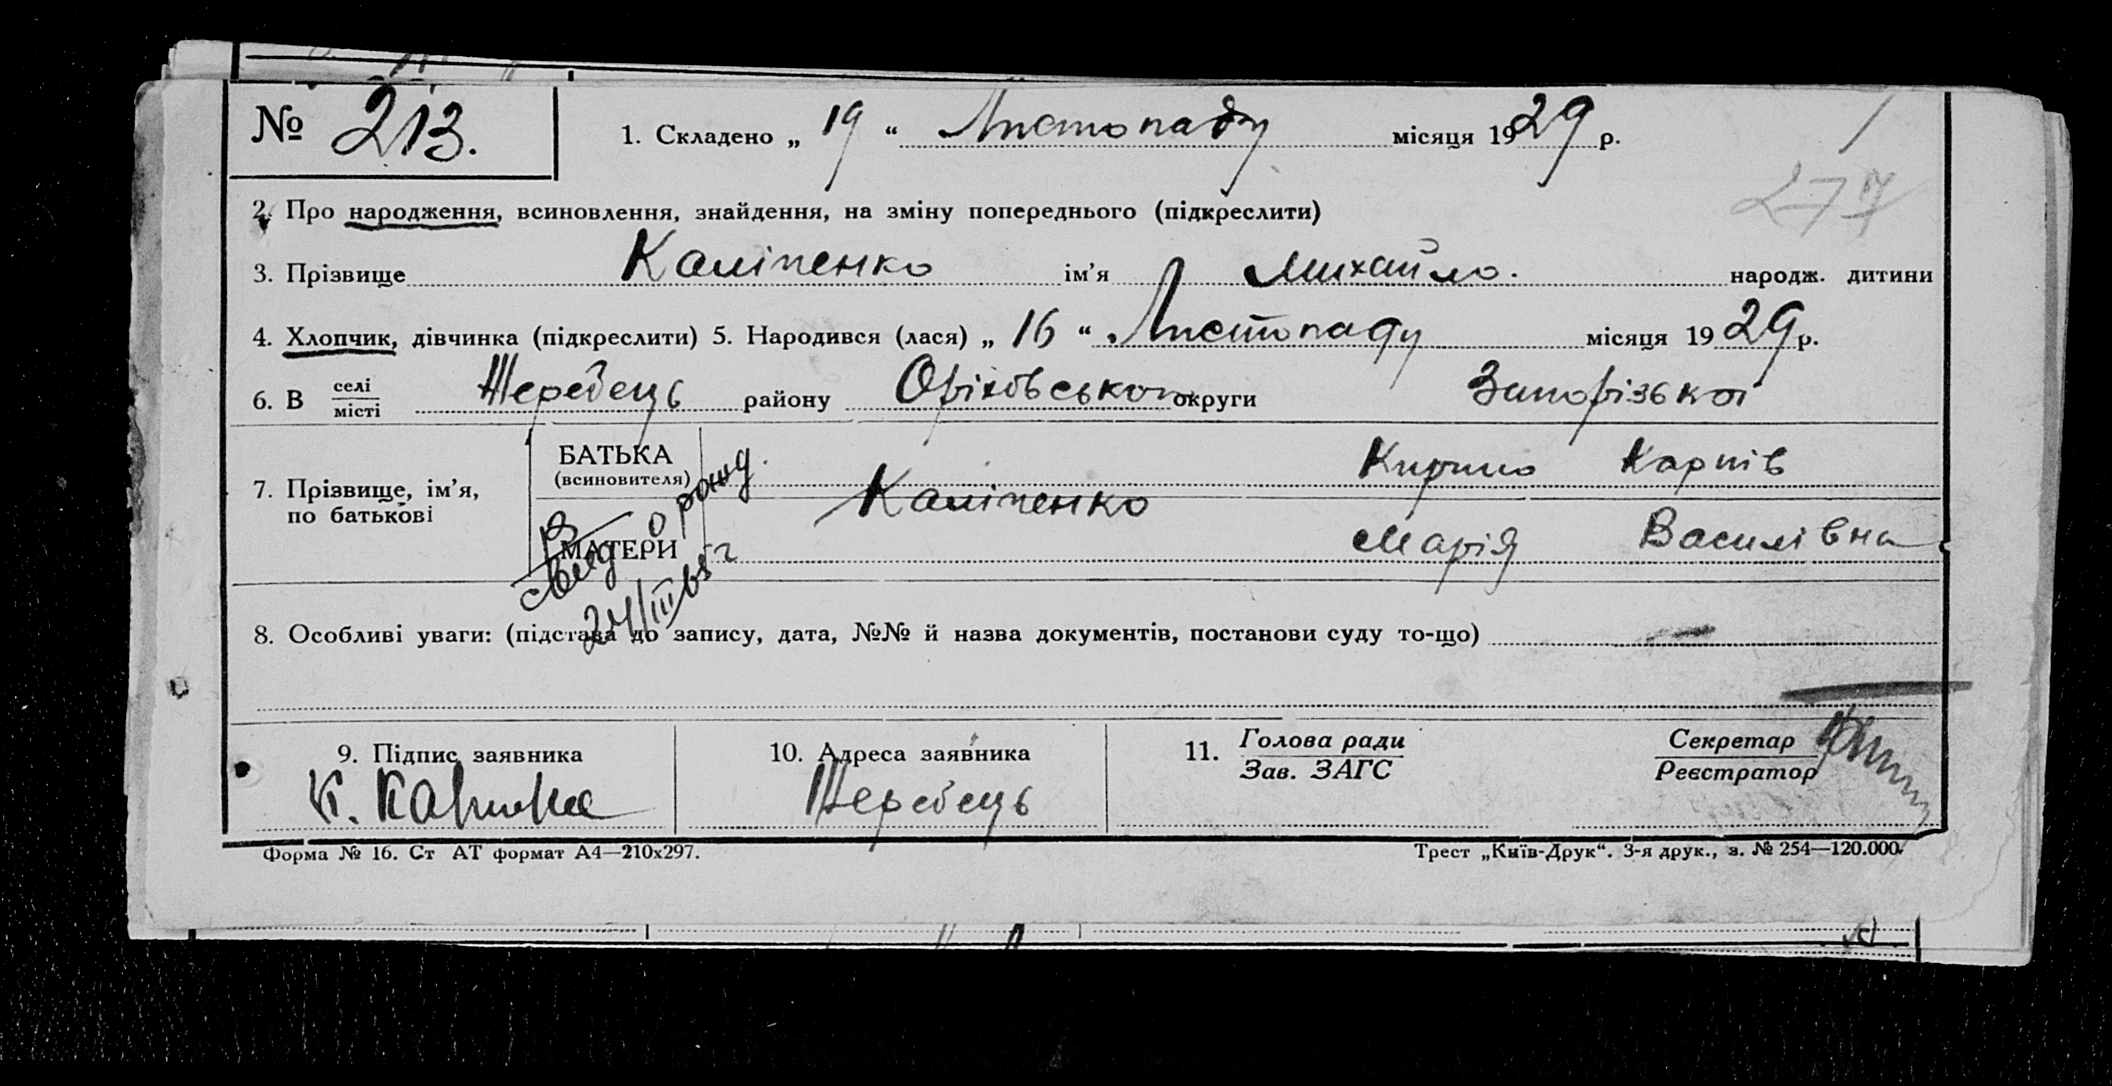 № 213.
1. Складено „ 19 “ Листопаду місяця 1929 р.
277
2. Про народження, всиновлення, знайдення, на зміну попереднього (підкреслити)
3. Прізвище Каліпенко ім’я Михайло. народж. дитини
4. Хлопчик, дівчинка (підкреслити) 5. Народився (лася) „ 16 “ Листопаду місяця 1929 р.
6. В селі/місті Жеребець району Оріхівського округи Запорізької
7. Прізвище, ім’я, по батькові
БАТЬКА (всиновителя) Каліпенко Кирило Карпів
МАТЕРИ Марія Василівна
о рожд.
24/III 65 г
8. Особливі уваги: (підстава до запису, дата, №№ й назва документів, постанови суду то-що) —
9. Підпис заявника
10. Адреса заявника
11. Голова ради
Зав. ЗАГС
Секретар
Реєстратор
К.
Жеребець
Форма № 16. Ст АТ формат А4—210х297.
Трест „Київ-Друк“. 3-я друк., з. № 254—120.000.